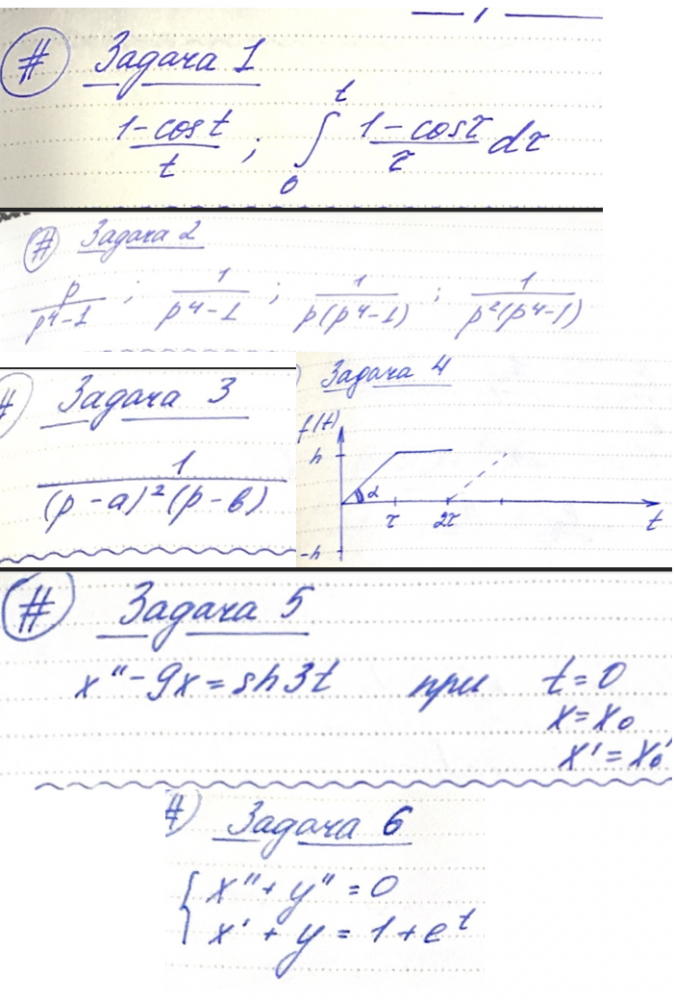 # Задача 1
1-cost/t ; ∫₀ᵗ 1-cosτ/τ dτ
# Задача 2
p/p⁴-1 ; 1/p⁴-1 ; 1/p(p⁴-1) ; 1/p²(p⁴-1)
# Задача 3
1/(p-a)²(p-в)
Задача 4
f(t)
h
α
τ 2τ t
-h
# Задача 5
x"-9x=sh3t при t=0
x=x₀
x'=x₀'
# Задача 6
{ x"+y"=0
x'+y=1+eᵗ